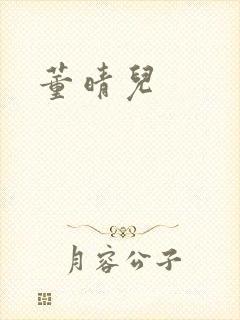 董晴兒
月容公子